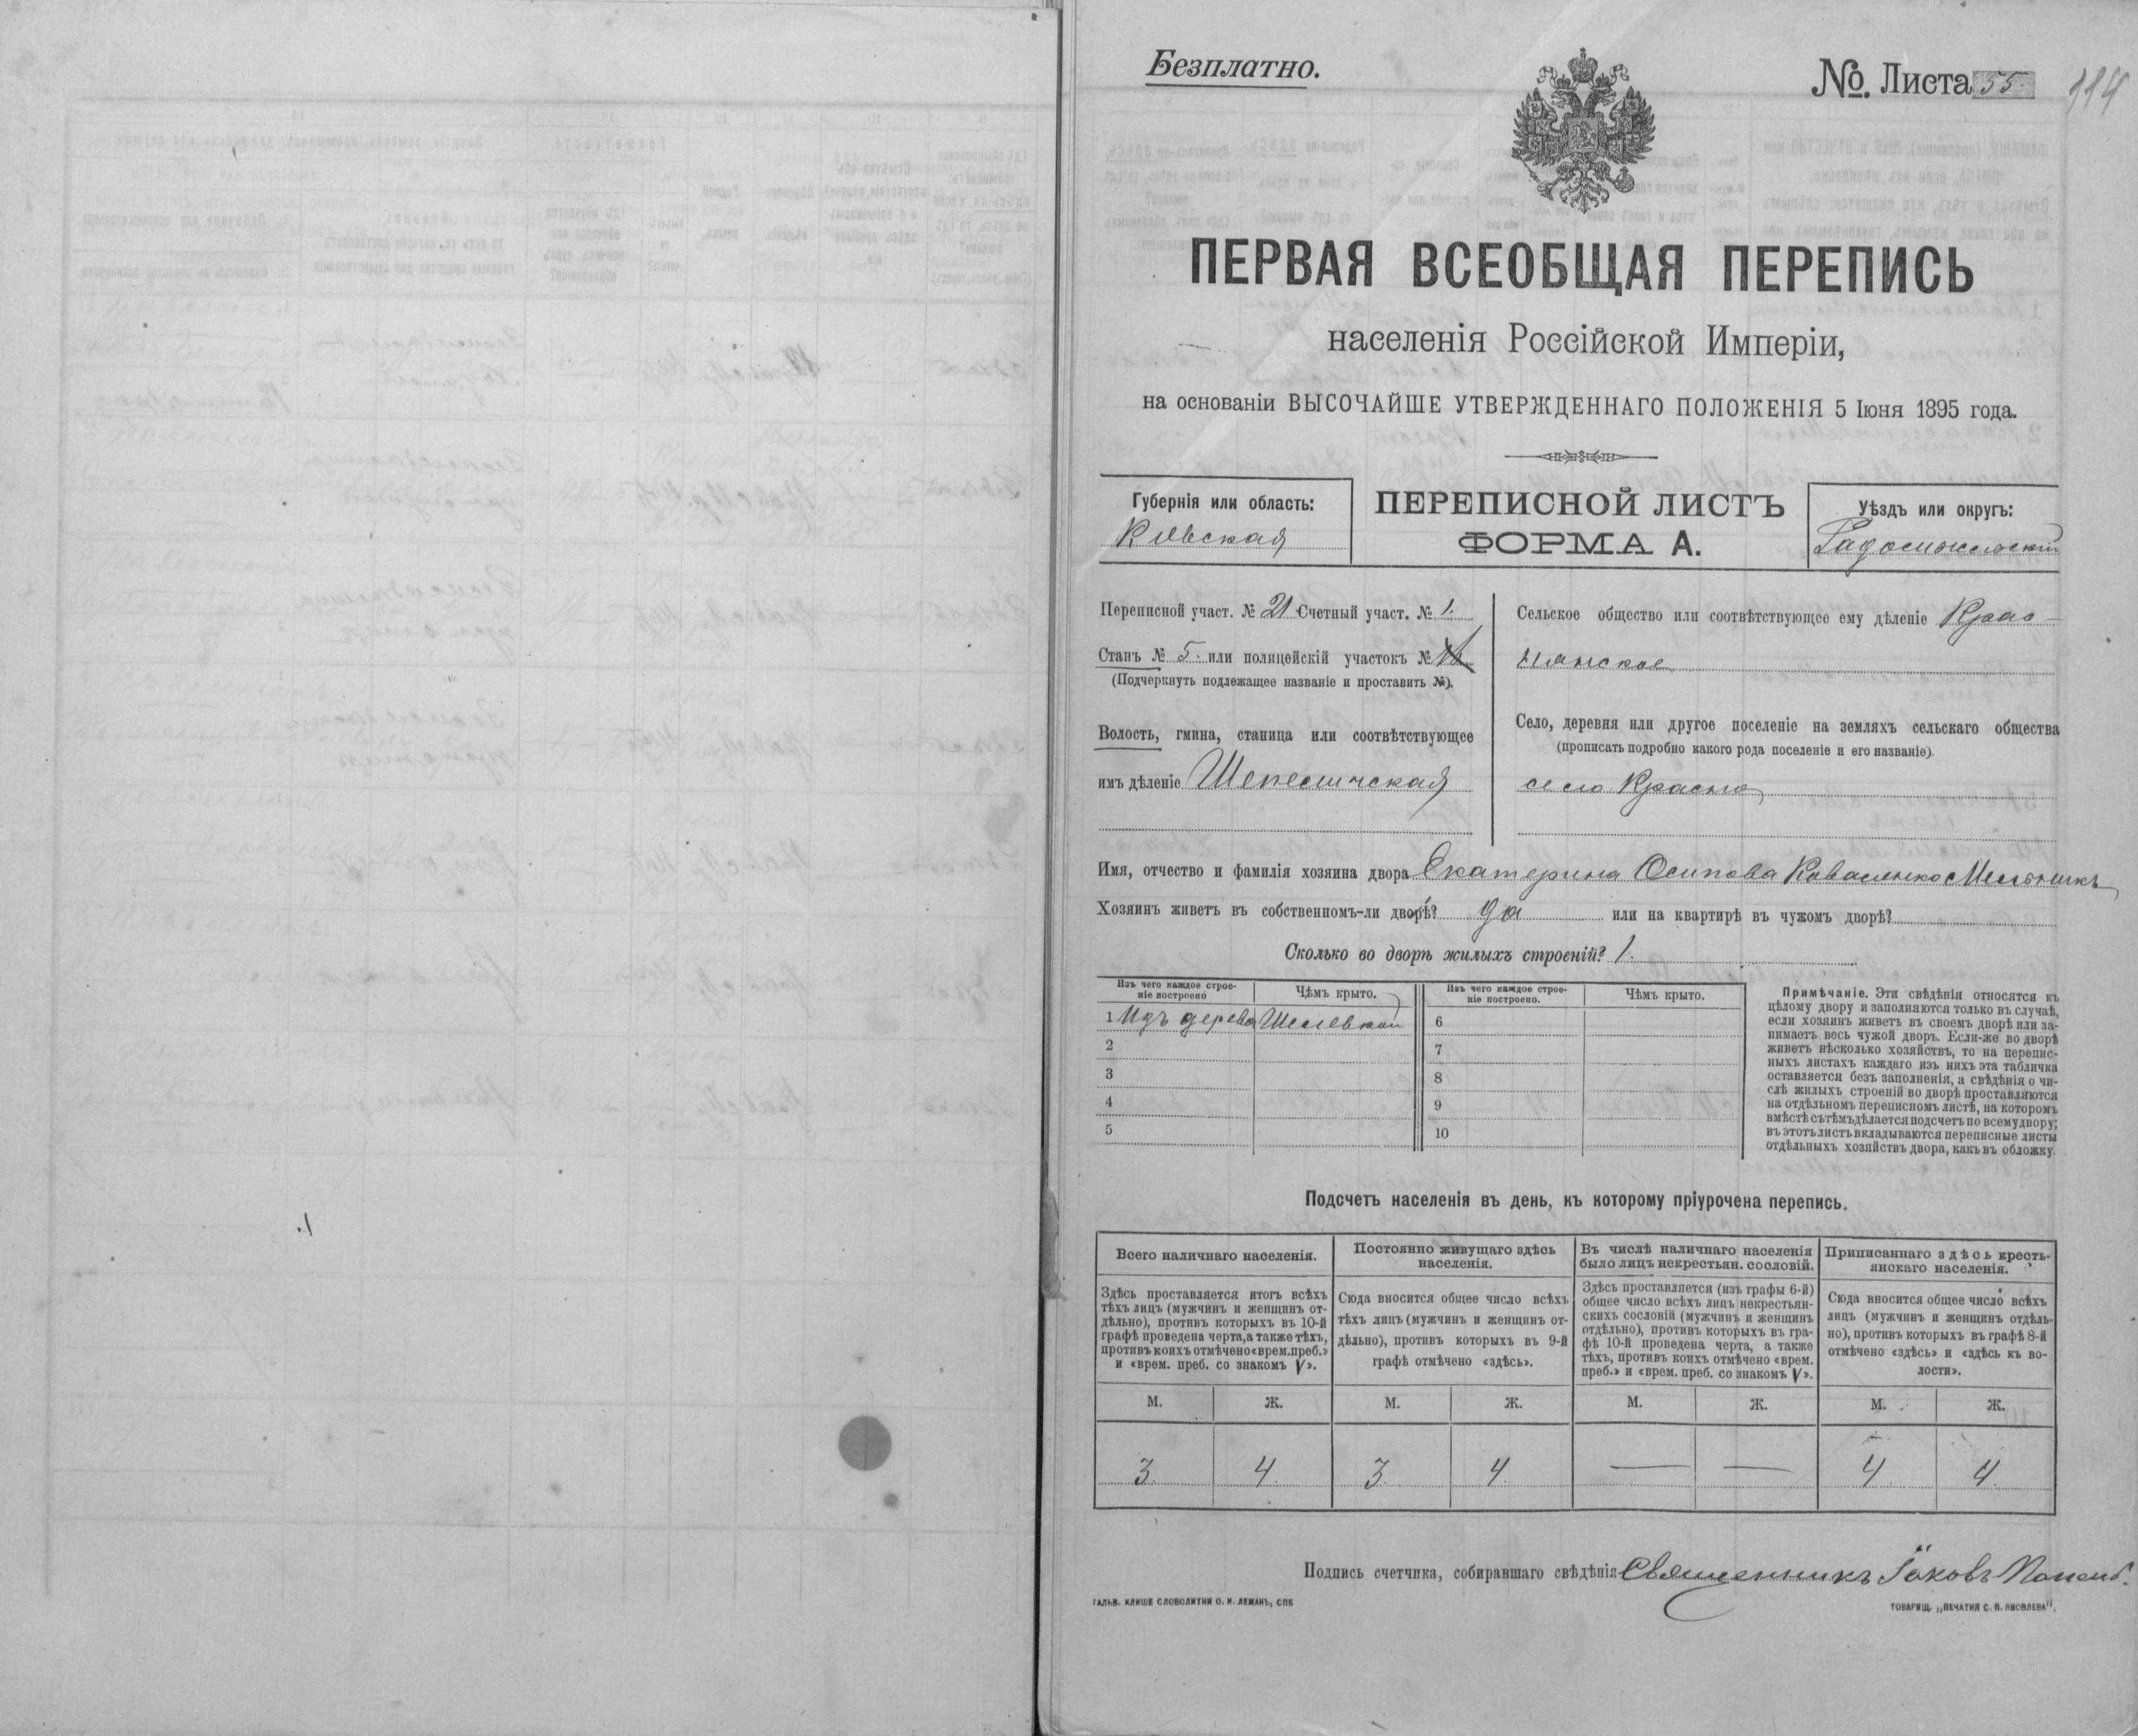 Безплатно.
№. Листа 55.
114
ПЕРВАЯ ВСЕОБЩАЯ ПЕРЕПИСЬ
населенія Россійской Имперіи,
на основаніи ВЫСОЧАЙШЕ УТВЕРЖДЕННАГО ПОЛОЖЕНІЯ 5 Іюня 1895 года.
Губернія или область:
Кіевская
ПЕРЕПИСНОЙ ЛИСТЪ
ФОРМА А.
Уѣздъ или округъ:
Радомысльскій
Переписной участ. № 21. Счетный участ. № 1.
Станъ № 5. или полицейскій участокъ №
(Подчеркнуть подлежащее названіе и проставить №).
Волость, гмина, станица или соотвѣтствующее
имъ дѣленіе Шепеличская
Сельское общество или соотвѣтствующее ему дѣленіе Крас-
нянское
Село, деревня или другое поселеніе на земляхъ сельскаго общества
(прописать подробно какого рода поселеніе и его названіе).
село Красно
Имя, отчество и фамилія хозяина двора Екатерина Осипова Коваленко Мельникъ
Хозяинъ живетъ въ собственномъ-ли дворѣ? да или на квартирѣ въ чужомъ дворѣ?
Сколько во дворѣ жилыхъ строеній? 1.
Изъ чего каждое строе-
ніе построено
Чѣмъ крыто.
Изъ чего каждое строе-
ніе построено.
Чѣмъ крыто.
1 Изъ дерева
6
2
7
3
8
4
9
5
10
Примѣчаніе. Эти свѣдѣнія относятся къ
цѣлому двору и заполняются только въ случаѣ,
если хозяинъ живетъ въ своемъ дворѣ или за-
нимаетъ весь чужой дворъ. Если-же во дворѣ
живетъ нѣсколько хозяйствъ, то на перепис-
ныхъ листахъ каждаго изъ нихъ эта табличка
оставляется безъ заполненія, а свѣдѣнія о чи-
слѣ жилыхъ строеній во дворѣ проставляются
на отдѣльномъ переписномъ листѣ, на которомъ
вмѣстѣ съ тѣмъ дѣлается подсчетъ по всему двору;
въ этотъ листъ вкладываются переписные листы
отдѣльныхъ хозяйствъ двора, какъ въ обложку.
Подсчетъ населенія въ день, къ которому пріурочена перепись.
Всего наличнаго населенія.
Здѣсь проставляется итогъ всѣхъ
тѣхъ лицъ (мужчинъ и женщинъ от-
дѣльно), противъ которыхъ въ 10-й
графѣ проведена черта, а также тѣхъ,
противъ коихъ отмѣчено «врем. преб.»
и «врем. преб. со знакомъ V».
Постоянно живущаго здѣсь
населенія.
Сюда вносится общее число всѣхъ
тѣхъ лицъ (мужчинъ и женщинъ от-
дѣльно), противъ которыхъ въ 9-й
графѣ отмѣчено «здѣсь».
Въ числѣ наличнаго населенія
было лицъ некрестьян. сословій.
Здѣсь проставляется (изъ графы 6-й)
общее число всѣхъ лицъ некрестьян-
скихъ сословій (мужчинъ и женщинъ
отдѣльно), противъ которыхъ въ гра-
фѣ 10-й проведена черта, а также
тѣхъ, противъ коихъ отмѣчено «врем.
преб.» и «врем. преб. со знакомъ V».
Приписаннаго здѣсь кресть-
янскаго населенія.
Сюда вносится общее число всѣхъ
лицъ (мужчинъ и женщинъ отдѣль-
но), противъ которыхъ въ графѣ 8-й
отмѣчено «здѣсь» и «здѣсь къ во-
лости».
М. Ж. М. Ж. М. Ж. М. Ж.
3. 4. 3. 4. — — 4. 4.
Подпись счетчика, собиравшаго свѣдѣнія Священникъ Іаковъ
ГАЛЬВ. КЛИШЕ СЛОВОЛИТНИ О. И. ЛЕМАНЪ, СПБ
ТОВАРИЩ. „ПЕЧАТНЯ С. П. ЯКОВЛЕВА".